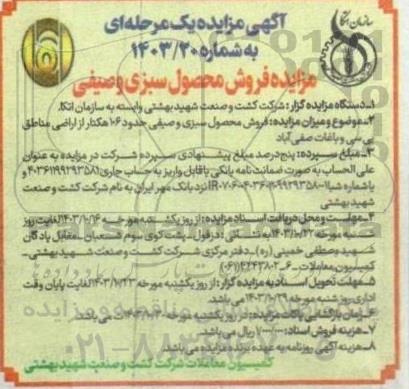 سازمان اتکا
آگهی مزایده یک مرحله‌ای
به شماره ۱۴۰۳/۲۰
مزایده فروش محصول سبزی و صیفی
۱ـ دستگاه مزایده گزار: شرکت کشت و صنعت شهید بهشتی وابسته به سازمان اتکا.
۲ـ موضوع و میزان مزایده: فروش محصول سبزی و صیفی حدود ۱۰۶ هکتار از اراضی مناطق
بی سی و باغات صفی آباد
۳ـ مبلغ سپرده: پنج درصد مبلغ پیشنهادی سپرده شرکت در مزایده به عنوان
علی الحساب به صورت ضمانت نامه بانکی یا قابل واریز به حساب جاری
یا شماره شبا نزد بانک مهر ایران به نام شرکت کشت و صنعت
شهید بهشتی
۴ـ مهلت و محل دریافت اسناد مزایده: از روز یکشنبه مورخه ۱۴۰۳/۱۰/۱۶ لغایت روز
شنبه مورخه ۱۴۰۳/۱۰/۲۲ به نشانی: دزفول ـ پشت کوی سوم شعبان ـ مقابل پادگان
شهید وصفی خمینی (ره) ـ دفتر مرکزی شرکت کشت و صنعت شهید بهشتی ـ
کمیسیون معاملات (۰۶۱)
۵ـ مهلت تحویل اسناد به مزایده گزار: از روز یکشنبه مورخه ۱۴۰۳/۱۰/۲۳ لغایت پایان وقت
اداری روز شنبه مورخه ۱۴۰۳/۱۰/۲۹ می باشد.
۶ـ زمان بازگشایی پاکات مزایده: در روز یکشنبه مورخه می باشد.
۷ـ هزینه فروش اسناد: ریال می باشد.
۸ـ هزینه آگهی روزنامه به عهده برنده مزایده می باشد.
کمیسیون معاملات شرکت کشت و صنعت شهید بهشتی